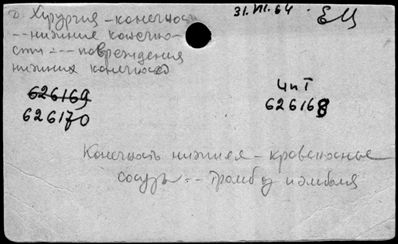 31.VII.64 ЕЦ
2. Хирургия - конечность
-- нижние конечно-
сти --- повреждения
нижния конечност
626169
626170
ЧиТ
626168
Конечность нижняя - кровеносные
сосуды -- тромбу и эмболя